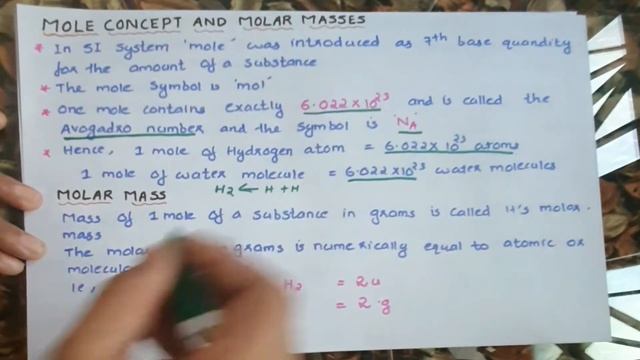 MOLE CONCEPT AND MOLAR MASSES
* In SI system 'mole' was introduced as 7th base quantity
for the amount of a substance
* The mole symbol is 'mol'
* One mole contains exactly 6.022 x 10^23 and is called the
Avogadro number and the symbol is 'NA
* Hence, 1 mole of Hydrogen atom = 6.022 x 10^23 atoms
1 mole of water molecule = 6.022 x 10^23 water molecules
H2 ← H + H
MOLAR MASS
Mass of 1 mole of a substance in grams is called it's molar.
mass
The molar grams is numerically equal to atomic or
ie, H2 = 2u
= 2.g